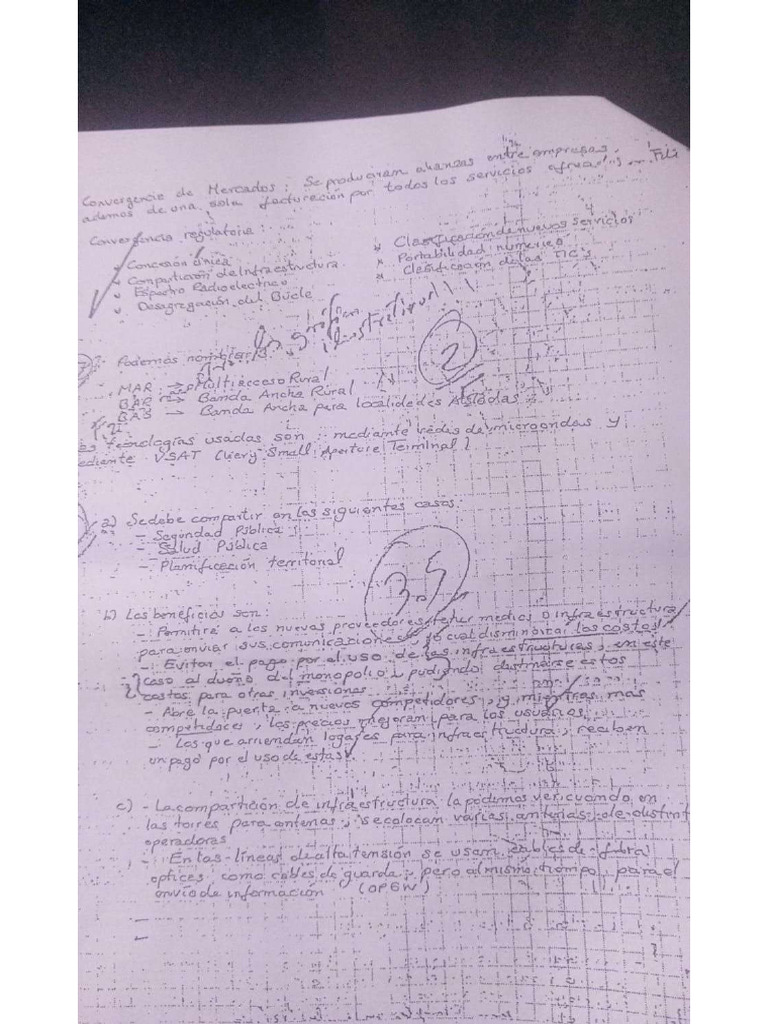 Convergencia de Mercados: Se produciram alianzas entre empresas,
ademas de una sola facturación por todos los servicios
Convergencia regulatoria:
Concesión única
Compartición de Infraestructura
Espectro Radioelectrico
Desagregación del Bucle
* Clasificación de nuevos servicios
* Portabilidad numerica
* Clasificación de las TIC's
2
Podemos nombrar
MAR → Multiacceso Rural
BAR → Banda Ancha Rural
BAS → Banda Ancha para localidades Aisladas
tecnologías usadas son mediante redes de microondas y
mediante VSAT (Very Small Aperture Terminal)
a) Se debe compartir en los siguientes casos:
- Seguridad Pública
- Salud Pública
- Planificación territorial
3.5
b) Los beneficios son:
- Permitirá a los nuevos proveedores tener medios o infraestructura
para enviar sus comunicaciones, lo cual disminuirá los costos
- Evitar el pago por el uso de las infraestructuras, en este
caso al dueño del monopolio, pudiendo destinarse estos
costos para otras inversiones
- Abre la puerta a nuevos competidores, y mientras mas
competidores, los precios mejoran para los usuarios
- Los que arriendan lugares para infraestructura, reciben
un pago por el uso de estas
c) - La compartición de infraestructura la podemos ver cuando en
las torres para antenas, se colocan varias antenas de distint
operadoras
- En las líneas de alta tensión se usam cables de fibra
optices como cables de guarda, pero al mismo tiempo, para el
envío de información (OPGW)